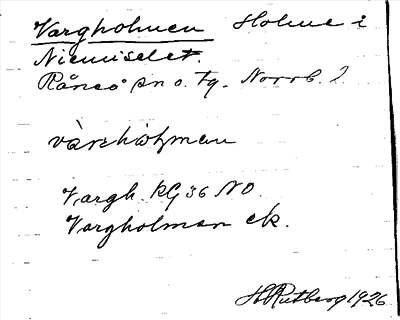 Vargholmen Holme i
Niemiselet.
Råneå sn o. tg. Norrb. l.
Vargh. KG 36 NO.
Vargholman ek.
H Rutberg 1926